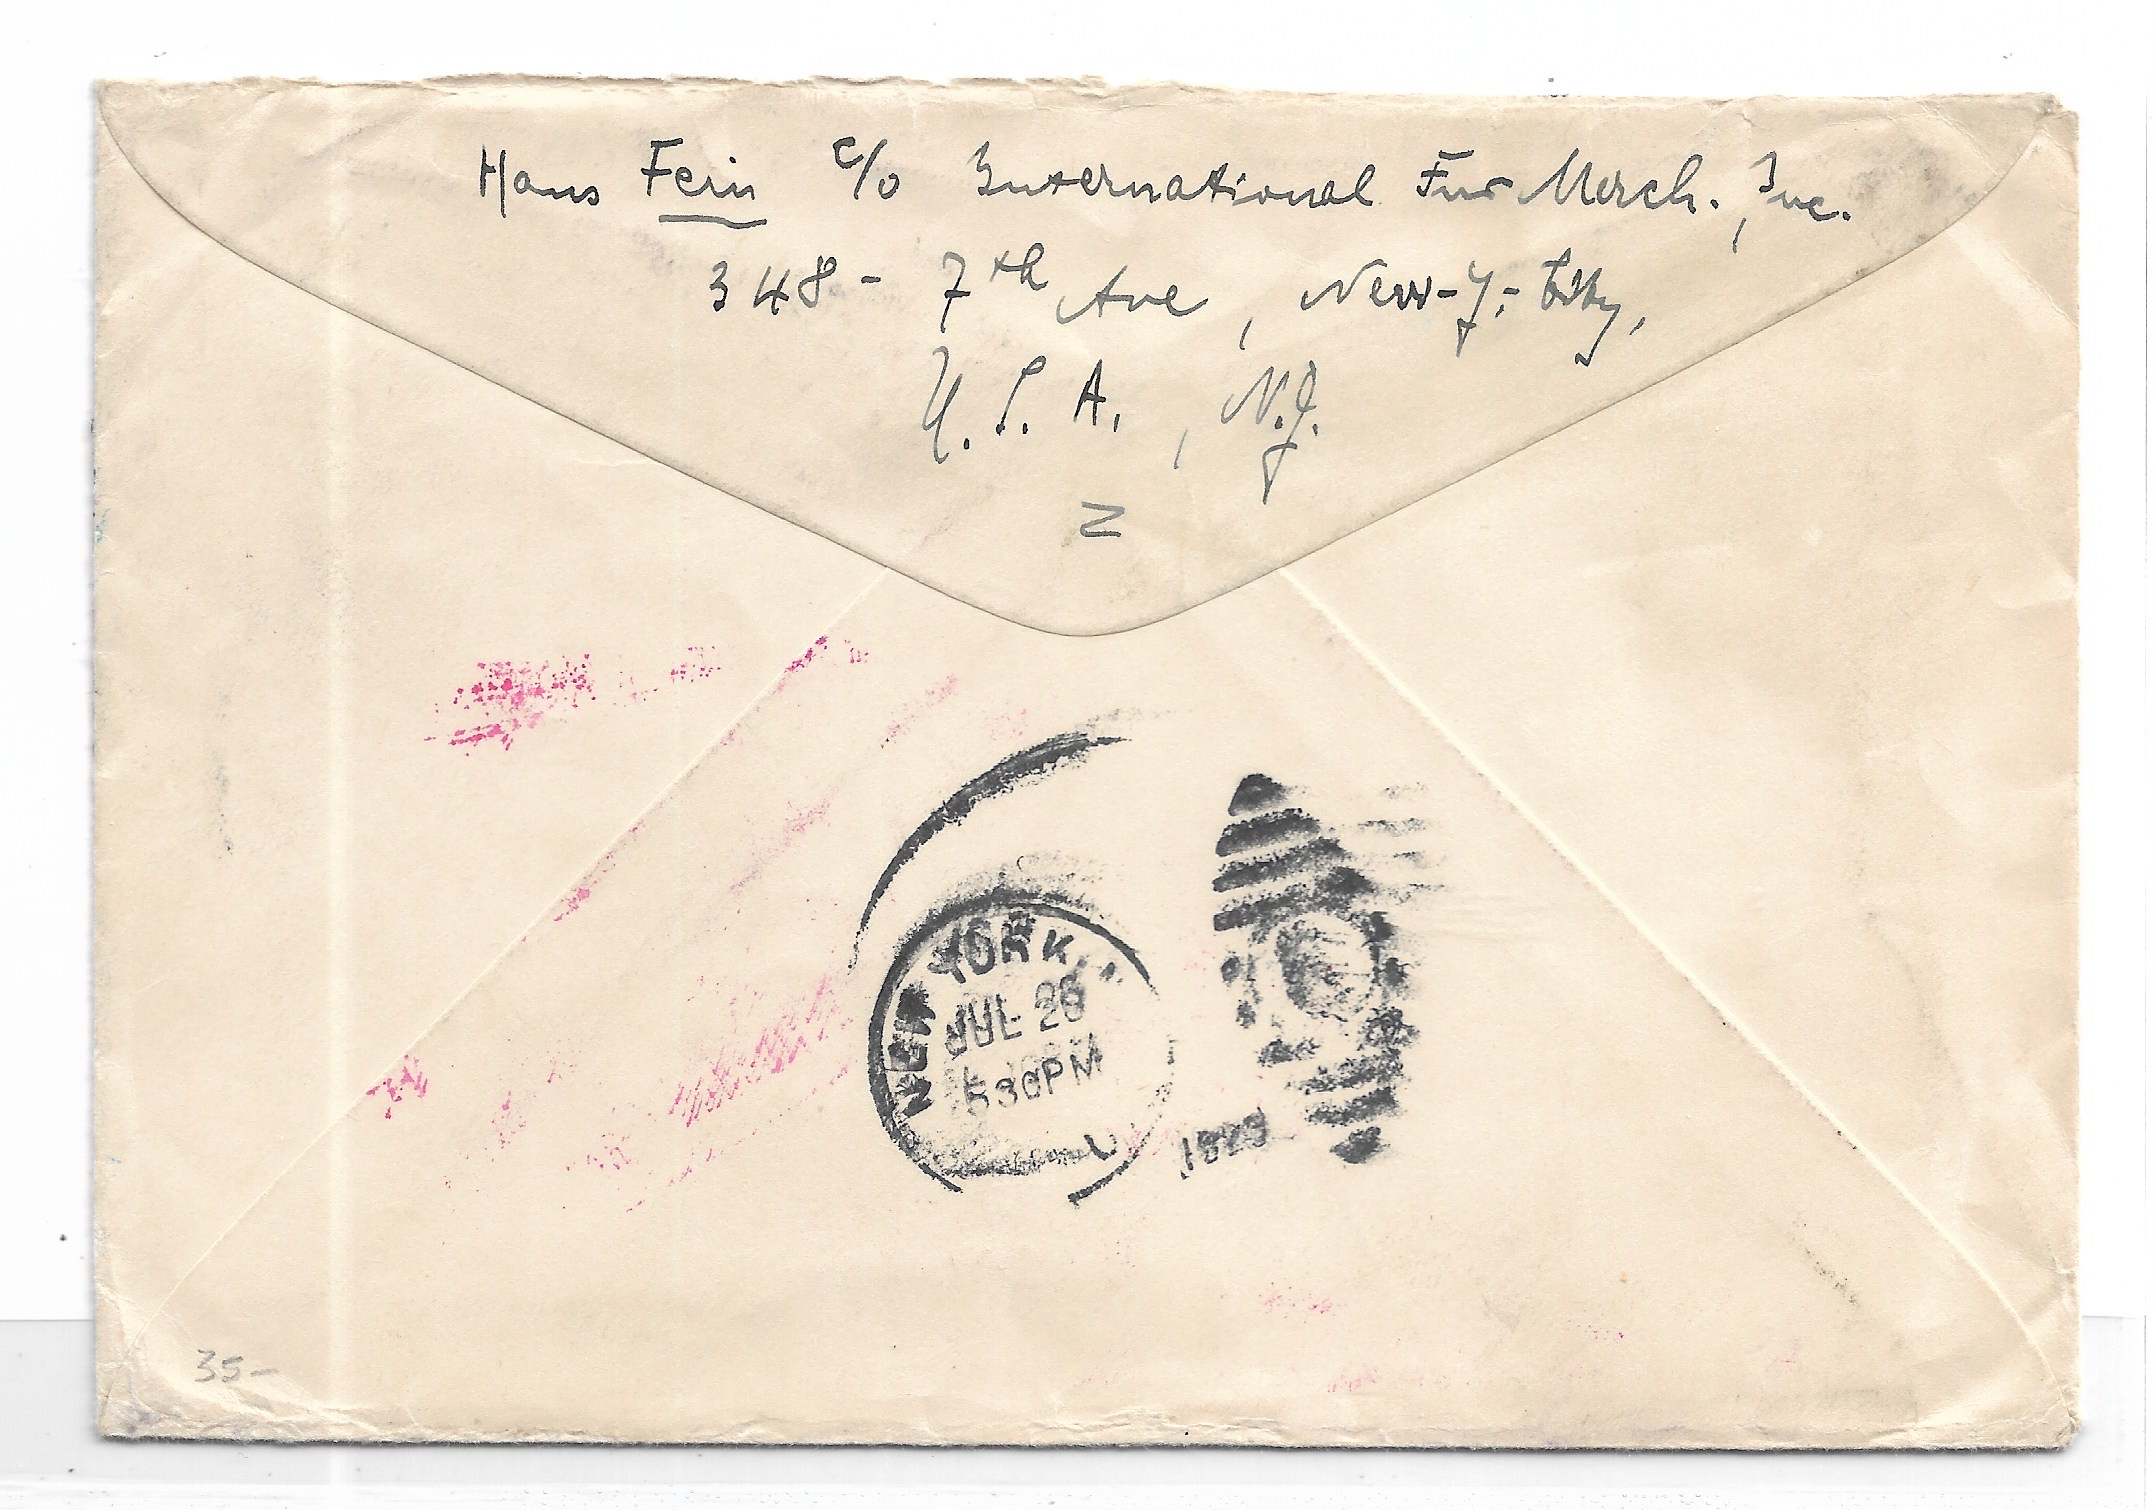 Hans Fein c/o International Fur Merch., Inc.
348- 7th Ave, New-Y.- City,
U.S.A., N.Y.
NEW YORK,
JUL 26
530PM
35-